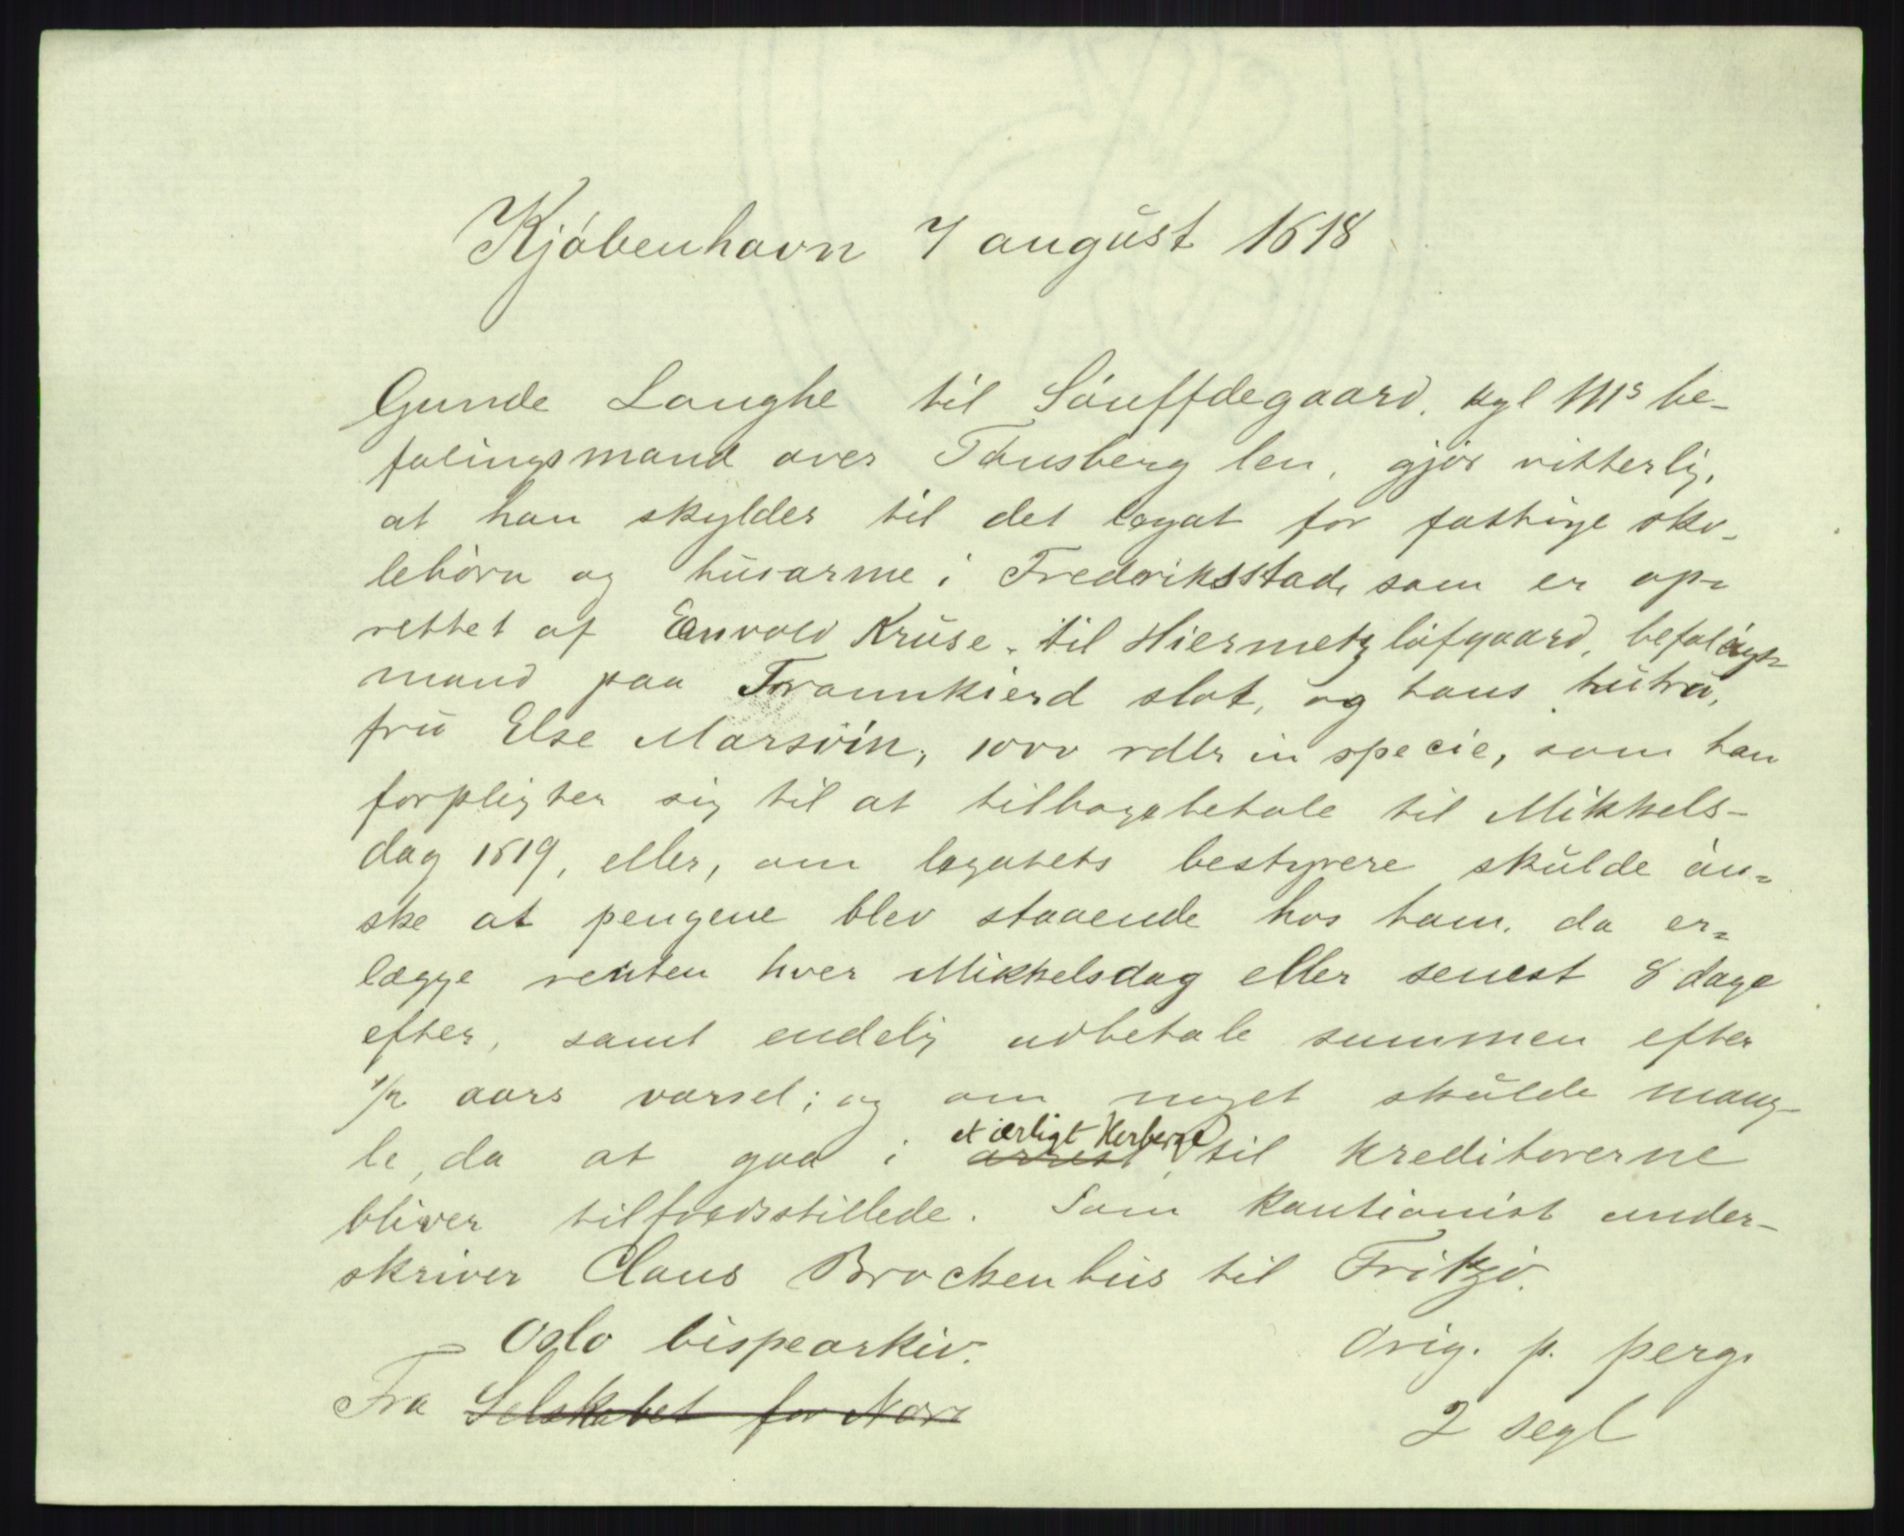 Kjøbenhavn 7 august 1618
Gunde Langhe til Søuffdegaard, kgl M's be-
falingsmand over Tønsberg len, gjør vitterlig,
at han skylder til det legat for fattige sko-
lebørn og husarme i Fredriksstad, som er op-
rettet af Envold Kruse til Hiermetzløfgaard, befalings-
mand paa Trannkierd slot, og hans hustru,
fru Else Marsvin, 1000 rdlr in specie, som han
forpligter sig til at tilbagebetale til Mikkels-
dag 1619, eller, om legatets bestyrere skulde øn-
ske at pengene blev staaende hos ham, da er-
lægge renten hver Mikkelsdag eller senest 8 dage
efter, samt endelig udbetale summen efter
1/2 aars varsel; og om noget skulde mang-
le, da at gaa i et ærligt Herberge arrest, til kreditorerne
bliver tilfredsstillede. Som kautionist under-
skriver Claus Brockenhus til Fritzø.
Oslo bispearkiv. Orig. p. perg.
Fra Selskabet for Nor 2 segl